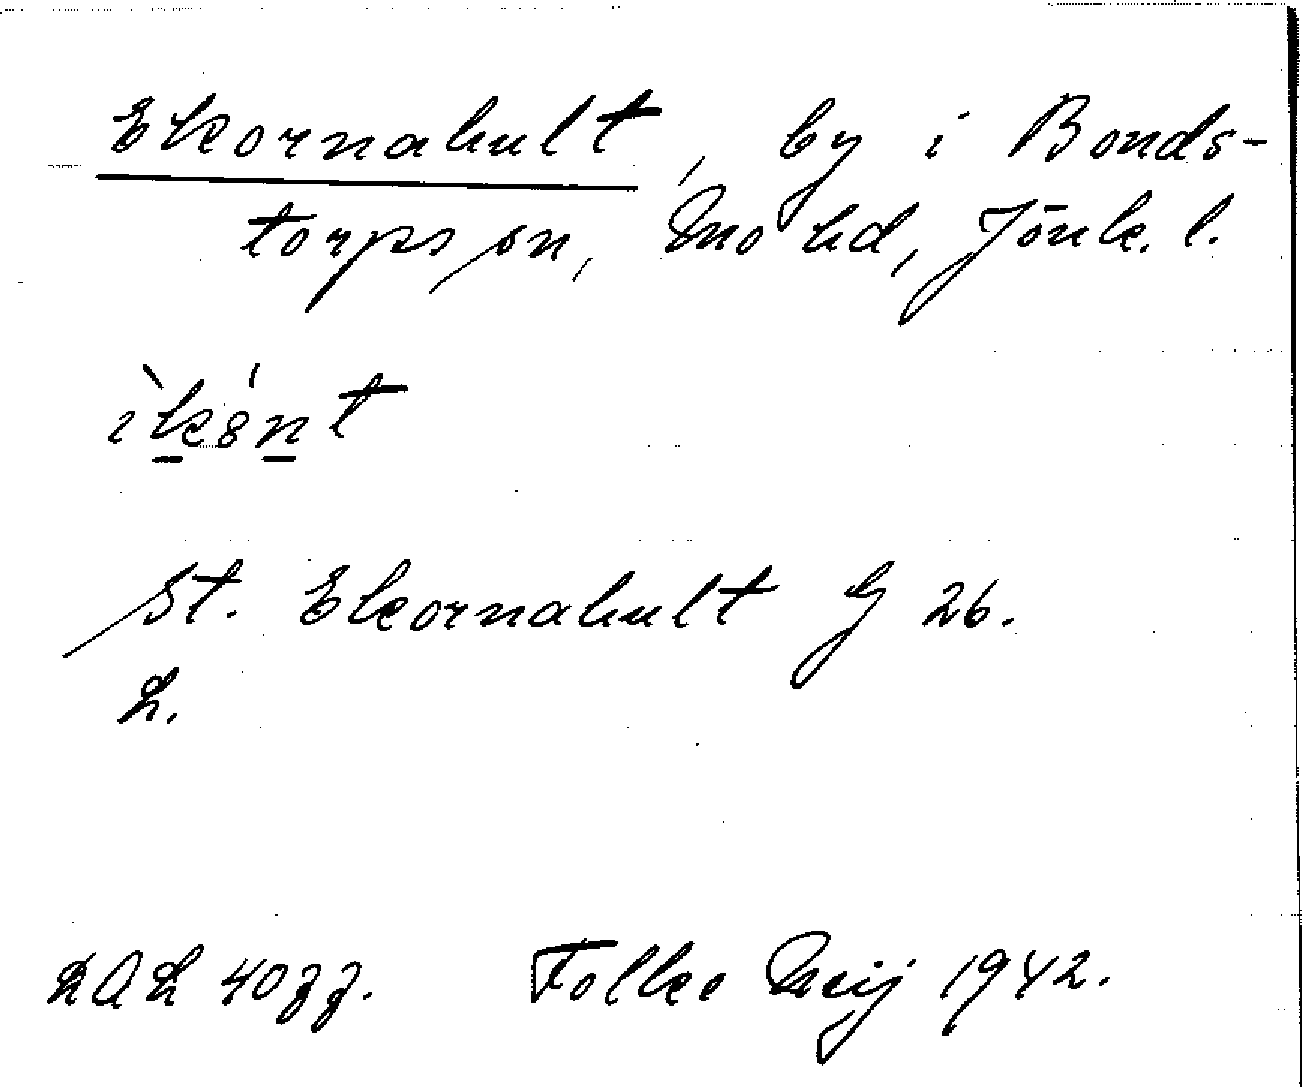 Ekornahult, by i Bonds-
torps sn, Mo hd, Jönk. l.
St. Ekornahult G 26.
L.
LAL 4077. Folke Meij 1942.